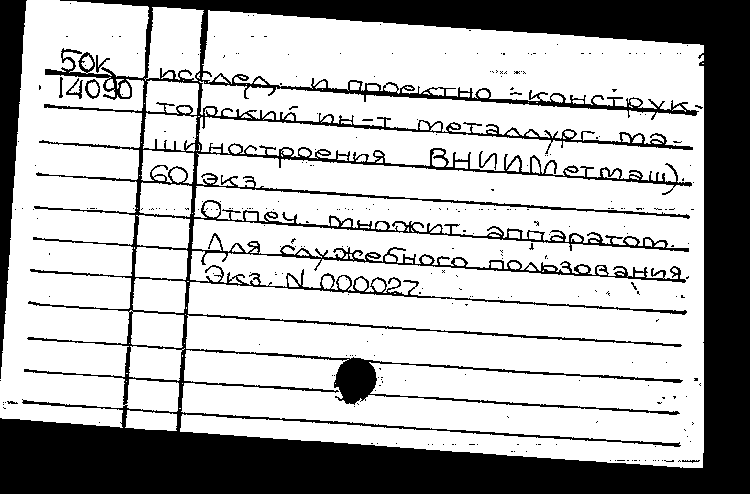 50К
14090
исслед, и проектно-конструк-
торский ин-т металлург. ма-
шиностроения ВНИИМетмаш).
60 экз.
Отпеч. множит. аппаратом.
Для служебного пользования.
Экз. N 000027.